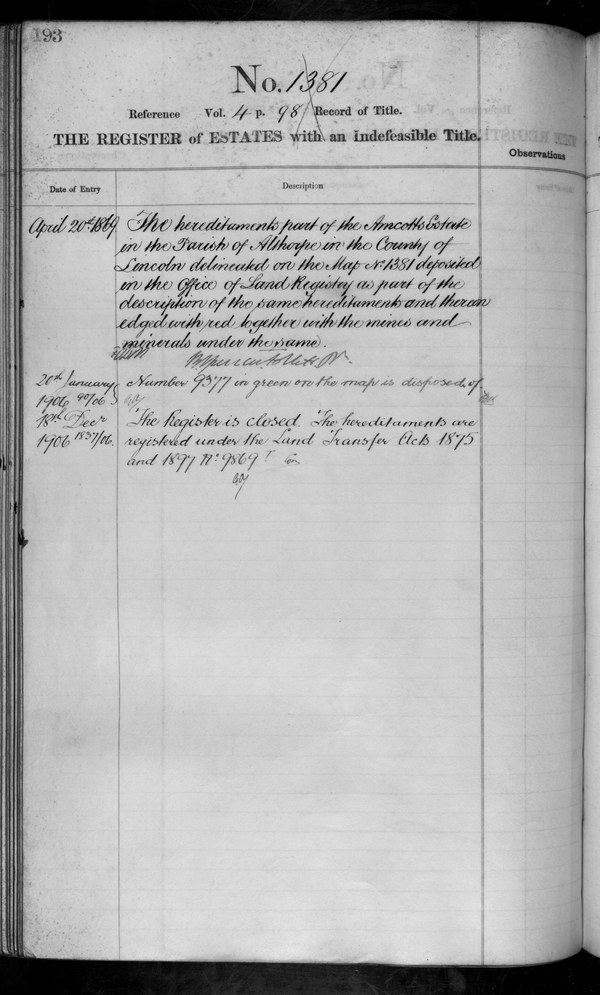 193
No. 1381
Reference Vol. 4 p. 98 Record of Title.
THE REGISTER of ESTATES with an Indefeasible Title.
Observations
Date of Entry
Description
April 20th 1869
The hereditaments part of the Amcotts Estate
in the Parish of Althorpe in the County of
Lincoln delineated on the Map No. 1381 deposited
in the Office of Land Registry as part of the
description of the same hereditaments and therein
edged with red together with the mines and
minerals under the same.
20th January
1906 90/06
Number 9377 in green on the map is disposed of
18th Decr
1906 1837/06.
The Register is closed. The hereditaments are
registered under the Land Transfer Acts 1875
and 1897 No. 9869